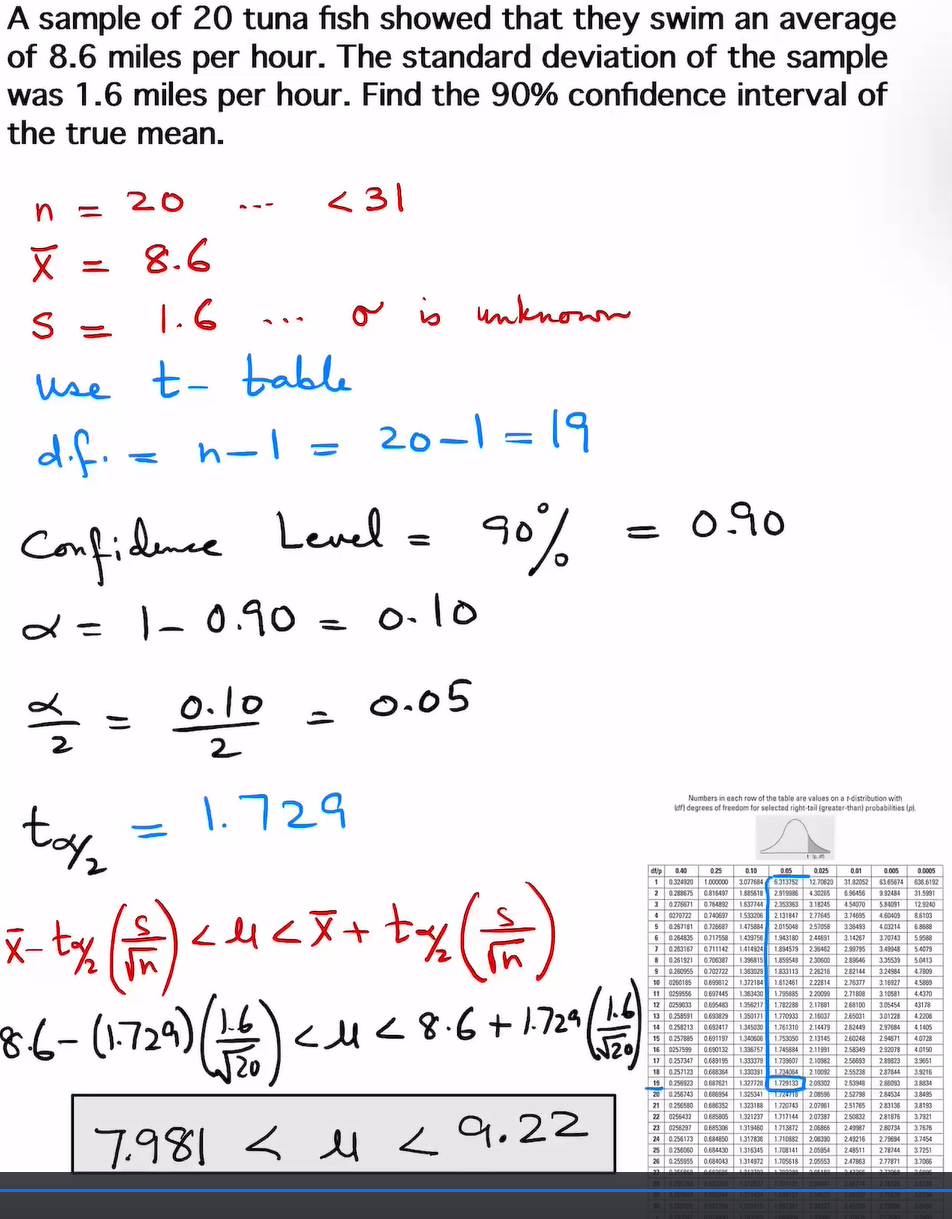 A sample of 20 tuna fish showed that they swim an average
of 8.6 miles per hour. The standard deviation of the sample
was 1.6 miles per hour. Find the 90% confidence interval of
the true mean.
n = 20 ... < 31
x̄ = 8.6
s = 1.6 ... σ is unknown
use t- table
d.f. = n-1 = 20-1 = 19
Confidence Level = 90% = 0.90
α = 1- 0.90 = 0.10
α/2 = 0.10/2 = 0.05
tα/2 = 1.729
x̄ - tα/2 (s/√n) < μ < x̄ + tα/2 (s/√n)
8.6 - (1.729) (1.6/√20) < μ < 8.6 + 1.729 (1.6/√20)
7.981 < μ < 9.22
Numbers in each row of the table are values on a t-distribution with
(df) degrees of freedom for selected right-tail (greater-than) probabilities (p).
df/p 0.40 0.25 0.10 0.05 0.025 0.01 0.005 0.0005
1 0.324920 1.000000 3.077684 6.313752 12.70620 31.82052 63.65674 636.6192
2 0.288675 0.816497 1.885618 2.919986 4.30265 6.96456 9.92484 31.5991
3 0.276671 0.764892 1.637744 2.353363 3.18245 4.54070 5.84091 12.9240
4 0270722 0.740697 1.533206 2.131847 2.77645 3.74695 4.60409 8.6103
5 0.267181 0.726687 1.475884 2.015048 2.57058 3.36493 4.03214 6.8688
6 0.264835 0.717558 1.439756 1.943180 2.44691 3.14267 3.70743 5.9588
7 0.263167 0.711142 1.414924 1.894579 2.36462 2.99795 3.49948 5.4079
8 0.261921 0.706387 1.396815 1.859548 2.30600 2.89646 3.35539 5.0413
9 0.260955 0.702722 1.383029 1.833113 2.26216 2.82144 3.24984 4.7809
10 0260185 0.699812 1.372184 1.812461 2.22814 2.76377 3.16927 4.5869
11 0259556 0.697445 1.363430 1.795885 2.20099 2.71808 3.10581 4.4370
12 0259033 0.695483 1.356217 1.782288 2.17881 2.68100 3.05454 43178
13 0.258591 0.693829 1.350171 1.770933 2.16037 2.65031 3.01228 4.2208
14 0.258213 0.692417 1.345030 1.761310 2.14479 2.62449 2.97684 4.1405
15 0.257885 0.691197 1.340606 1.753050 2.13145 2.60248 2.94671 4.0728
16 0257599 0.690132 1.336757 1.745884 2.11991 2.58349 2.92078 4.0150
17 0.257347 0.689195 1.333379 1.739607 2.10982 2.56693 2.89823 3.9651
18 0.257123 0.688364 1.330391 1.734064 2.10092 2.55238 2.87844 3.9216
19 0.256923 0.687621 1.327728 1.729133 2.09302 2.53948 2.86093 3.8834
20 0.256743 0.686954 1.325341 1.724718 2.08596 2.52798 2.84534 3.8495
21 0.256580 0.686352 1.323188 1.720743 2.07961 2.51765 2.83136 3.8193
22 0256432 0.685805 1.321237 1.717144 2.07387 2.50832 2.81876 3.7921
23 0256297 0.685306 1.319460 1.713872 2.06866 2.49987 2.80734 3.7676
24 0.256173 0.684850 1.317836 1.710882 2.06390 2.49216 2.79694 3.7454
25 0.256060 0.684430 1.316345 1.708141 2.05954 2.48511 2.78744 3.7251
26 0.255955 0.684043 1.314972 1.705618 2.05553 2.47863 2.77871 3.7066